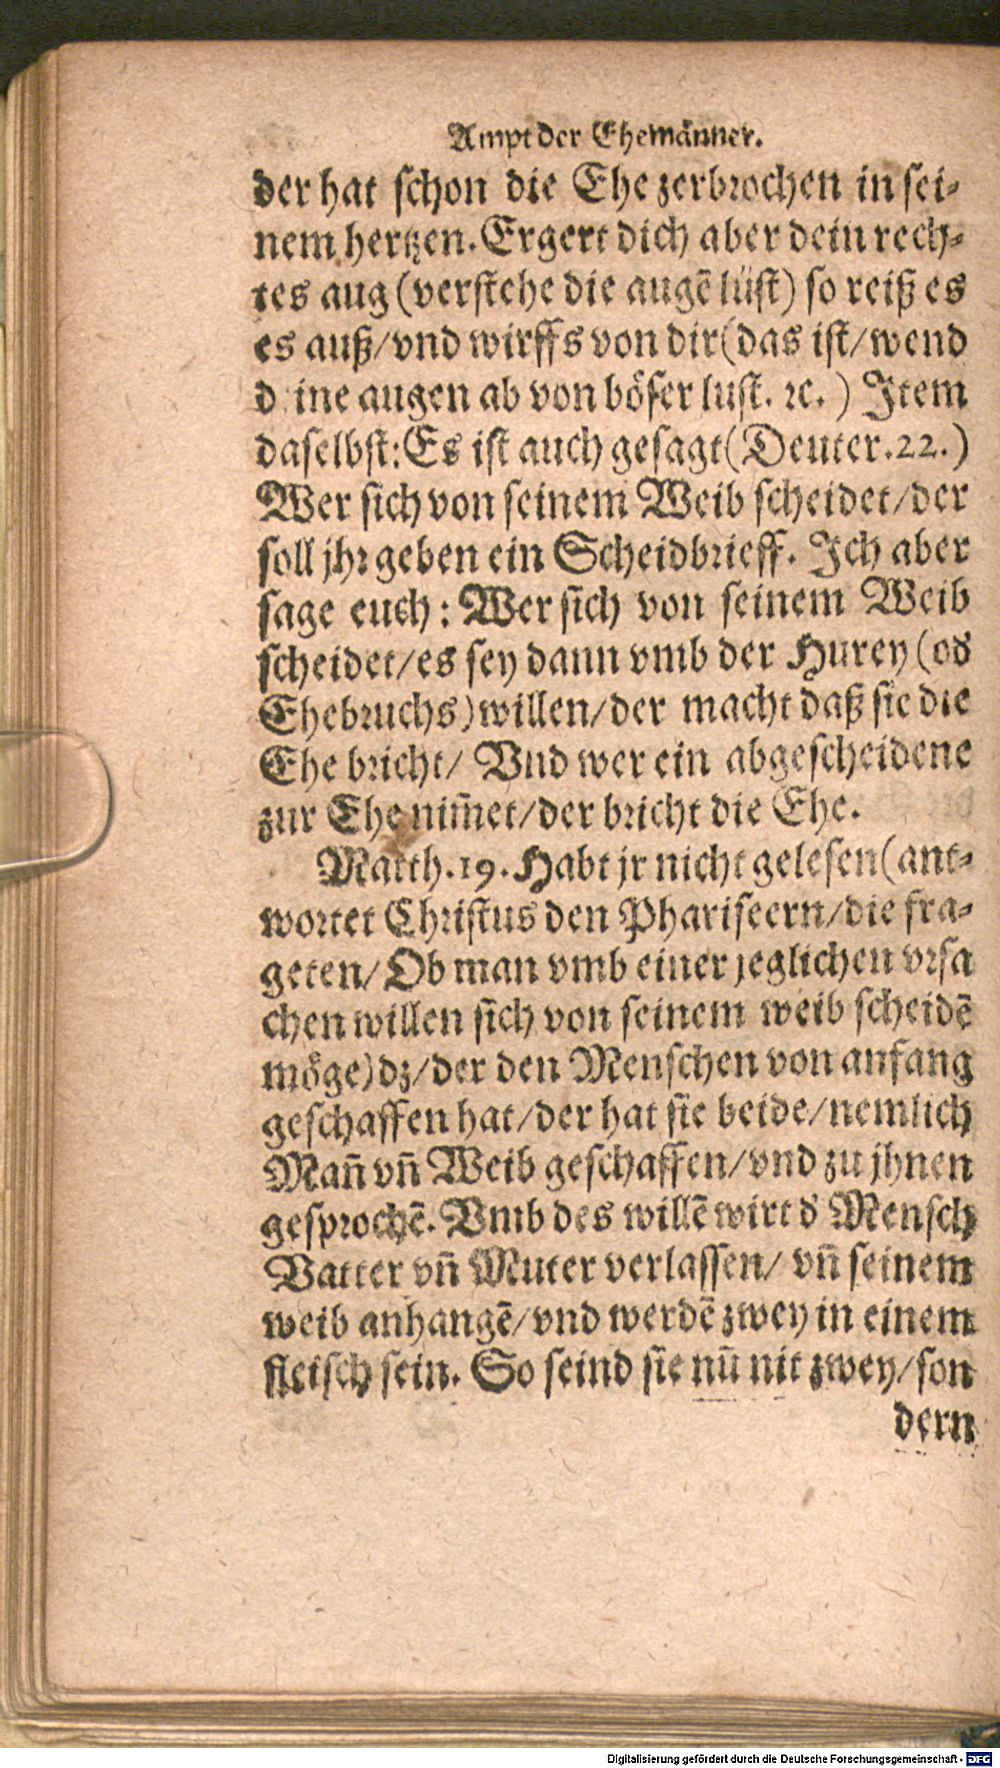 Ampt der Ehemänner.
der hat schon die Ehe zerbrochen in sei-
nem hertzen. Ergert dich aber dein rech-
tes aug (verstehe die augē lüst) so reiß es
es auß/vnd wirffs von dir (das ist/wend
d ine augen ab von böser lust. ꝛc.) Item
daselbst: Es ist auch gesagt (Deuter. 22.)
Wer sich von seinem Weib scheidet/der
soll jhr geben ein Scheidbrieff. Ich aber
sage euch: Wer sich von seinem Weib
scheidet/es sey dann vmb der Hurey (od
Ehebruchs) willen/der macht daß sie die
Ehe bricht/ Vnd wer ein abgescheidene
zur Ehe nim̄et/der bricht die Ehe.
Matth. 19. Habt jr nicht gelesen (ant-
wortet Christus den Phariseern/die fra-
geten/ Ob man vmb einer jeglichen vrsa
chen willen sich von seinem weib scheidē
möge) dz/der den Menschen von anfang
geschaffen hat/der hat sie beide/nemlich
Man̄ vn̄ Weib geschaffen/vnd zu jhnen
gesprochē. Vmb des willē wirt d Mensch
Vatter vn̄ Muter verlassen/ vn̄ seinem
weib anhangē/vnd werdē zwey in einem
fleisch sein. So seind sie nū nit zwey/son
dern
Digitalisierung gefördert durch die Deutsche Forschungsgemeinschaft - DFG